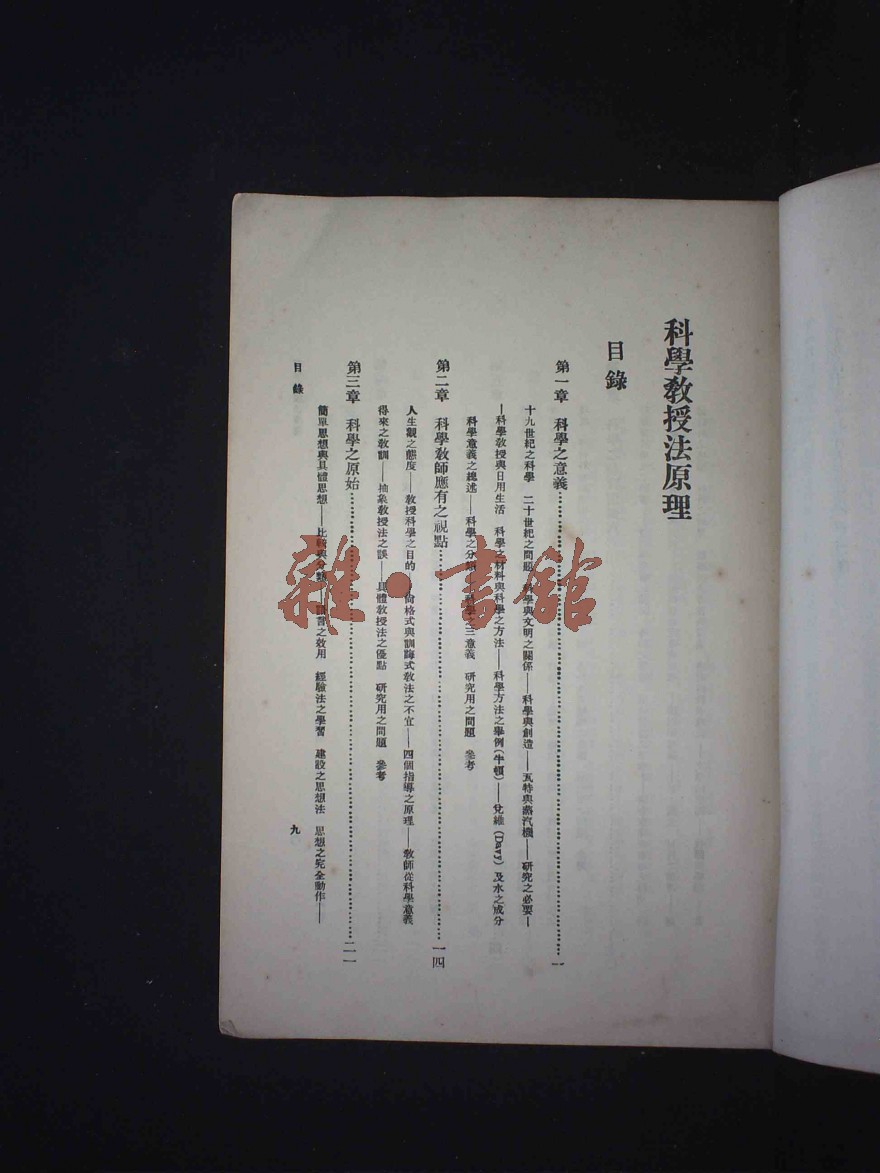 科學教授法原理
目錄
第一章 科學之意義…………一
十九世紀之科學 二十世紀之問題 科學與文明之關係——科學與創造——瓦特與蒸汽機——研究之必要—
—科學教授與日用生活 科學之材料與科學之方法——科學方法之舉例(牛頓)——兌維(Davy)及水之成分
科學意義之總述——科學之分類 科學之三意義 研究用之問題 參考
第二章 科學教師應有之視點…………一四
人生觀之態度——教授科學之目的 格式與訓誨式教法之不宜——四個指導之原理——教師從科學意義
得來之教訓——抽象教授法之誤——具體教授法之優點 研究用之問題 參考
第三章 科學之原始…………二一
簡單思想與具體思想——比較與分類 之效用 經驗法之學習 建設之思想法 思想之完全動作——
目錄
九
雜·書館